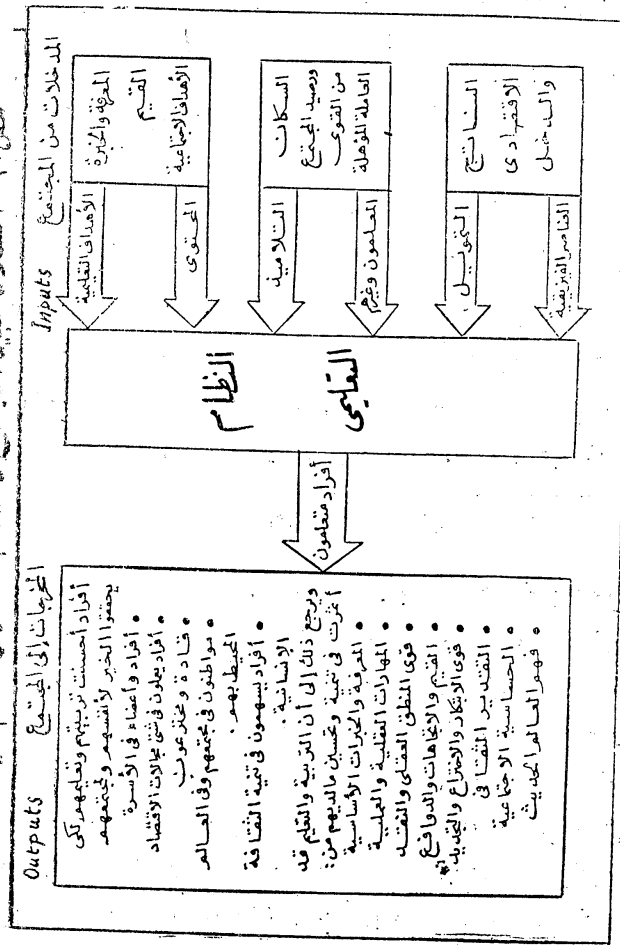 المدخلات من المجتمع
Inputs
المعرفة والخبرة
القيم
الأهداف الاجتماعية
السكان
ورصيد المجتمع
من القوى
العاملة المؤهلة
الناتج
الاقتصادى
والدخل
الأهداف التعليمية
المحتوى
التلاميذ
المعلمون وغيرهم
التمويل
العناصر الفيزيقية
النظام
التعليمى
أفراد متعلمون
Outputs
المخرجات إلى المجتمع
أفراد أحسنت تربيتهم وتعليمهم لكى
يحققوا الخير لأنفسهم ولمجتمعهم
• أفراد وأعضاء فى الأسرة
• أفراد يعملون فى شتى مجالات الاقتصاد
• قادة ومخترعون
• مواطنون فى مجتمعهم وفى العالم
المحيط بهم.
• أفراد يسهمون فى تنمية الثقافة
الإنسانية.
ويرجع ذلك إلى أن التربية والتعليم قد
أثرت فى تنمية وتحسين مالديهم من:
• المعرفة والخبرات الأساسية
• المهارات العقلية والعملية
• قوى المنطق العقلى والنقد
• القيم والاتجاهات والدوافع
• قوى الابتكار والاختراع والتجديد
• التقدير الثقافى
• الحساسية الاجتماعية
• فهم العالم الحديث